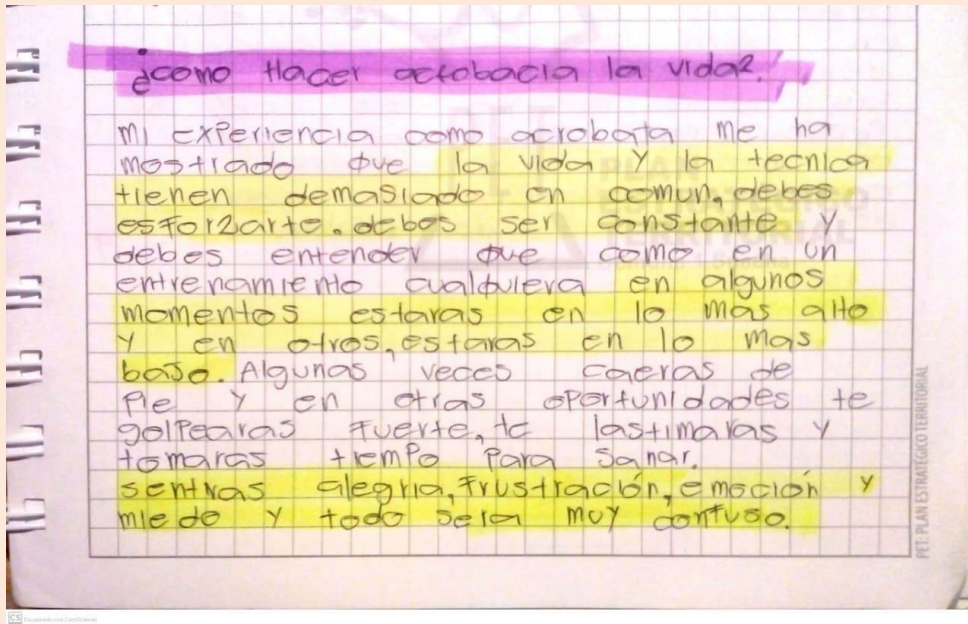 ¿como Hacer acrobacia la vida?.
mi experiencia como acrobata me ha
mostrado que la vida y la tecnica
tienen demasiado en comun, debes
esforzarte. debes ser constante y
debes entender que como en un
entrenamiento cualquiera en algunos
momentos estaras en lo mas alto
y en otros, estaras en lo mas
bajo. Algunas veces caeras de
pie y en otras oportunidades te
golpearas fuerte, te lastimaras y
tomaras tiempo para sanar.
sentiras alegria, frustración, emoción y
miedo y todo sera muy confuso.
PET: PLAN ESTRATÉGICO TERRITORIAL
CS Escaneado con CamScanner